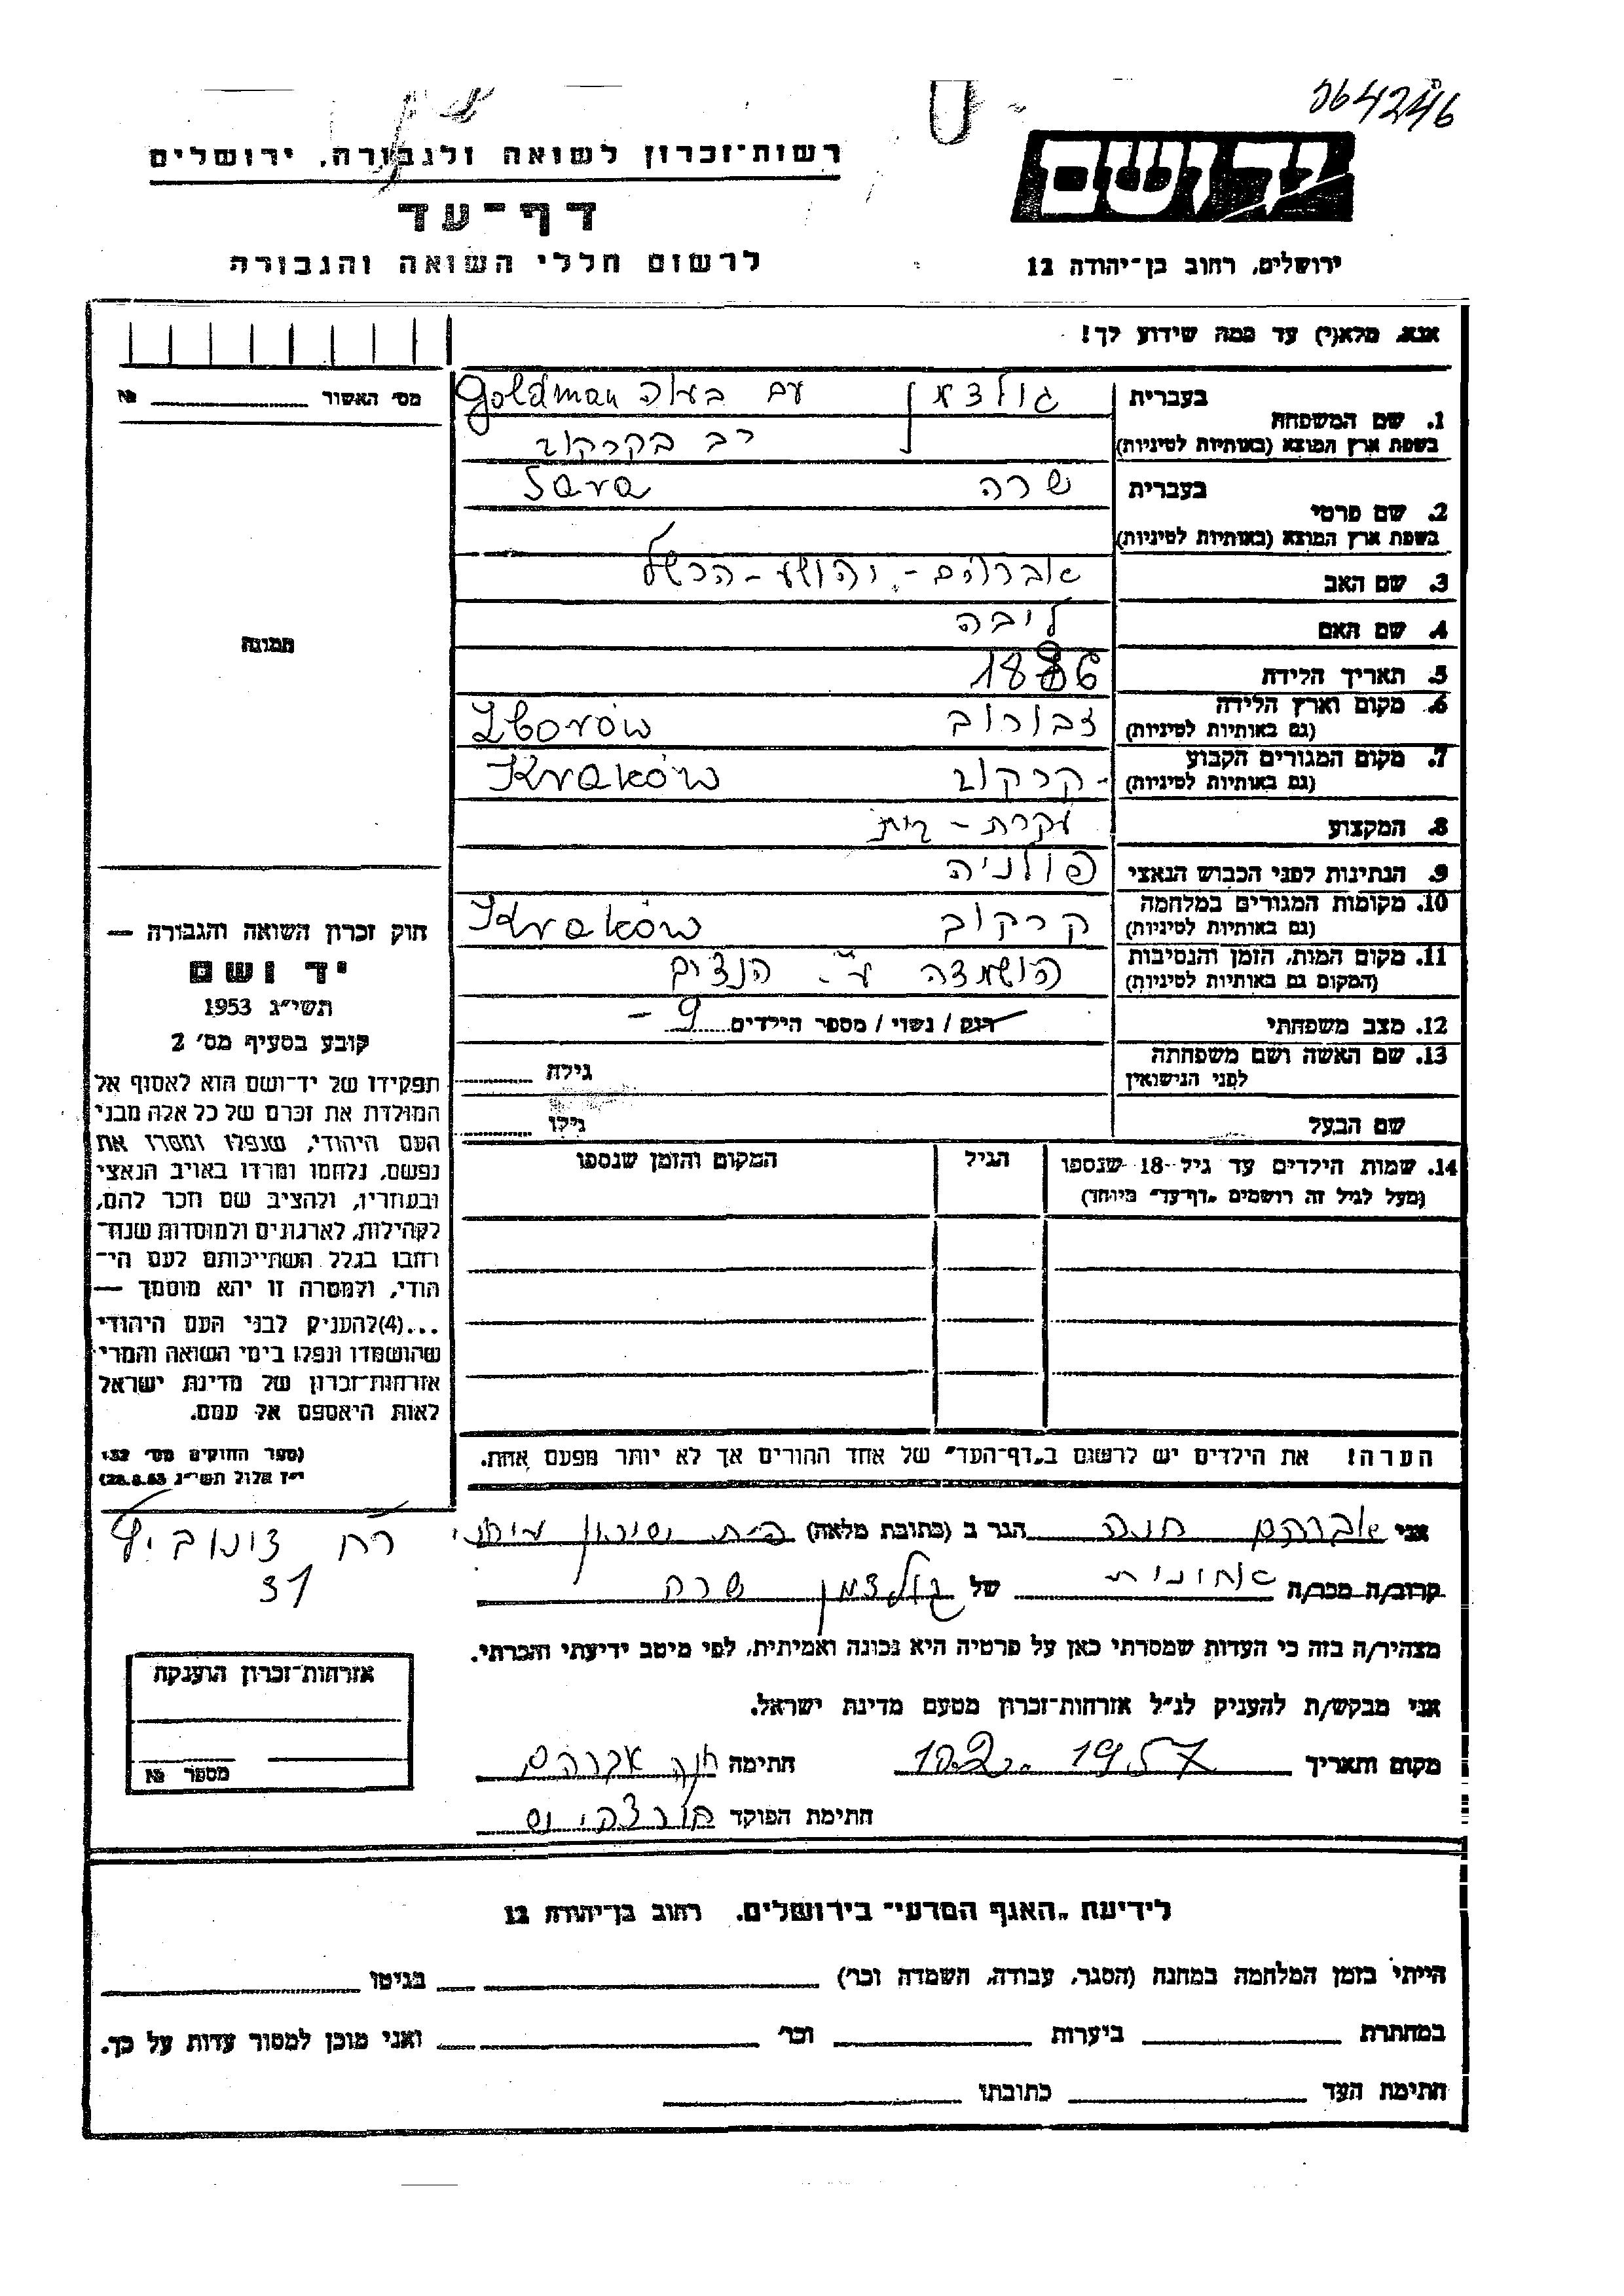 יד ושם
ירושלים, רחוב בן־יהודה 12
רשות־זכרון לשואה ולגבורה, ירושלים
דף־עד
לרשום חללי השואה והגבורה
אנא, מלא(י) עד כמה שידוע לך!
מס׳ האשור № 
1. שם המשפחה בעברית גולדמן עם בעלה Goldman
בשפת ארץ המוצא (באותיות לטיניות) רב בקרקוב
2. שם פרטי בעברית שרה Sara
בשפת ארץ המוצא (באותיות לטיניות)
3. שם האב אברהם - יהושע - השל
4. שם האם ליבה
5. תאריך הלידה 1886
6. מקום וארץ הלידה זבורוב Zborów
(גם באותיות לטיניות)
7. מקום המגורים הקבוע קרקוב Kraków
(גם באותיות לטיניות)
8. המקצוע עקרת - בית
9. הנתינות לפני הכבוש הנאצי פולניה
10. מקומות המגורים במלחמה קרקוב Kraków
(גם באותיות לטיניות)
11. מקום המות, הזמן והנסיבות הושמדה ע"י הנצים
(המקום גם באותיות לטיניות)
12. מצב משפחתי רוק / נשוי / מספר הילדים 9 -
13. שם האשה ושם משפחתה גילה
לפני הנישואין
שם הבעל גילו
14. שמות הילדים עד גיל 18 שנספו הגיל המקום והזמן שנספו
(מעל לגיל זה רושמים „דף־עד״ מיוחד)
הערה! את הילדים יש לרשום ב„דף־העד״ של אחד ההורים אך לא יותר מפעם אחת.
תמונה
חוק זכרון השואה והגבורה —
יד ושם
תשי״ג 1953
קובע בסעיף מס׳ 2
תפקידו של יד־ושם הוא לאסוף אל
המולדת את זכרם של כל אלה מבני
העם היהודי, שנפלו ומסרו את
נפשם, נלחמו ומרדו באויב הנאצי
ובעוזריו, ולהציב שם וזכר להם,
לקהילות, לארגונים ולמוסדות שנח־
רבו בגלל השתייכותם לעם הי־
הודי, ולמטרה זו יהא מוסמך —
...(4)להעניק לבני העם היהודי
שהושמדו ונפלו בימי השואה והמרי
אזרחות־זכרון של מדינת ישראל
לאות היאספם אל עמם.
(ספר החוקים מס׳ 132
י״ז אלול תשי״ג 28.8.53)
אני אברהם חנה הגר ב (כתובת מלאה)
31
קרוב/ה מכר/ה של גולדמן שרה
מצהיר/ה בזה כי העדות שמסרתי כאן על פרטיה היא נכונה ואמיתית, לפי מיטב ידיעתי והכרתי.
אני מבקש/ת להעניק לנ״ל אזרחות־זכרון מטעם מדינת ישראל.
מקום ותאריך 10.2.1957 חתימה חנה אברהם
חתימת הפוקד
אזרחות־זכרון הוענקה
מספר №
לידיעת „האגף המדעי״ בירושלים, רחוב בן־יהודה 12
הייתי בזמן המלחמה במחנה (הסגר, עבודה, השמדה וכו׳) בגיטו
במחתרת ביערות וכו׳ ואני מוכן למסור עדות על כך.
חתימת העד כתובתו